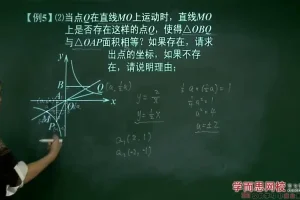 【例5】⑵当点Q在直线MO上运动时，直线MO
上是否存在这样的点Q，使得△OBQ
与△OAP面积相等？如果存在，请求
出点的坐标，如果不存
在，请说明理由；
y
B
A
O
x
M
P
Q(a, ½a)
y = 2/x
y = ½x
½a × (½a) = 1
¼a² = 1
a² = 4
a = ±2
Q₁(2, 1)
Q₂(-2, -1)
学而思网校